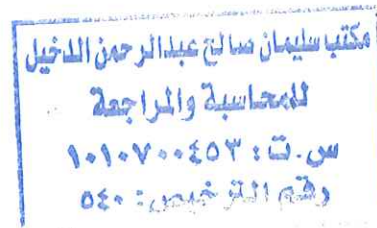 مكتب سليمان صالح عبدالرحمن الدخيل
للمحاسبة والمراجعة
س.ت: ١٠١٠٧٠٠٤٥٣
رقم الترخيص: ٥٤٠